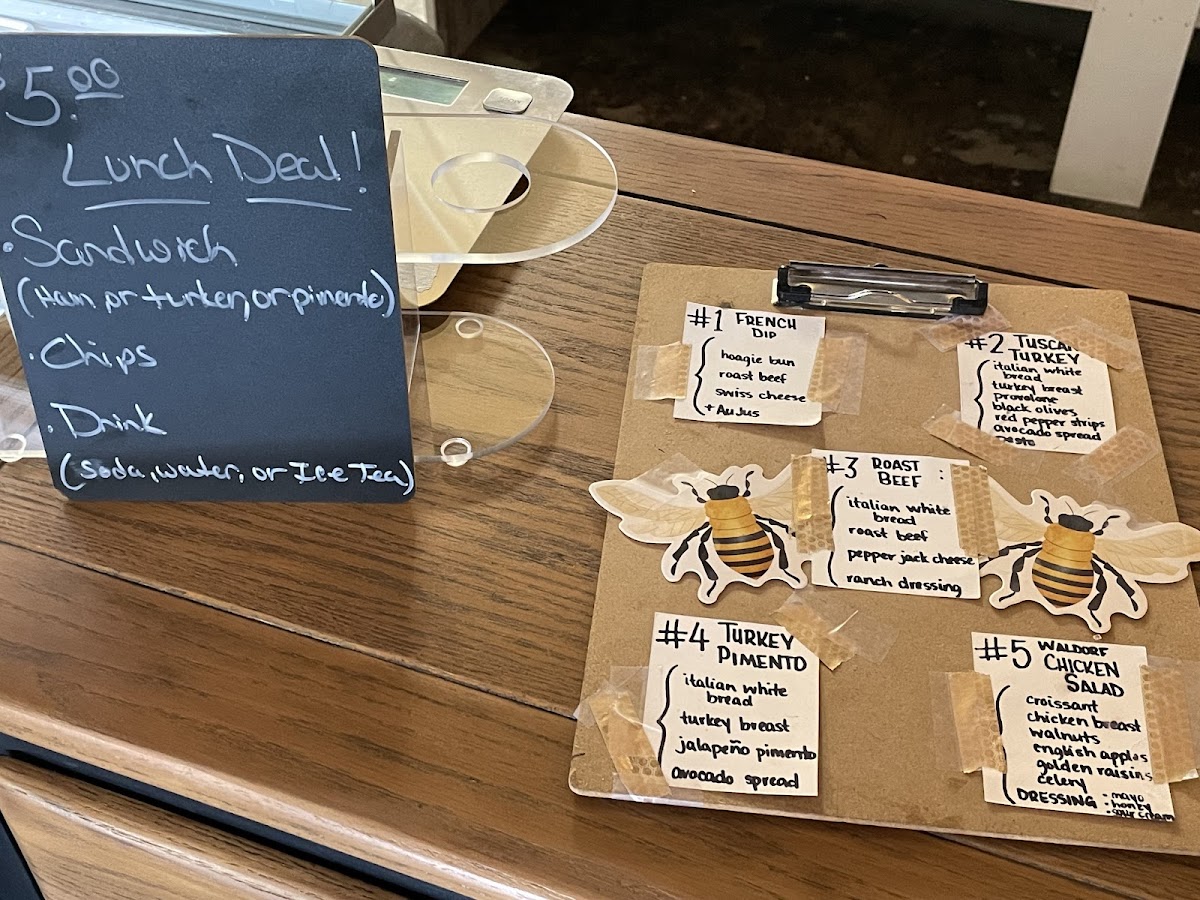 $5.00
Lunch Deal!
• Sandwich
(Ham or turkey, or pimento)
• Chips
• Drink
(Soda, water, or Ice Tea)
#1 FRENCH
DIP
hoagie bun
roast beef
swiss cheese
+ AuJus
#2 TUSCAN
TURKEY
italian white
bread
turkey breast
provolone
black olives
red pepper strips
avocado spread
pesto
#3 ROAST
BEEF :
italian white
bread
roast beef
pepper jack cheese
ranch dressing
#4 TURKEY
PIMENTO
italian white
bread
turkey breast
jalapeño pimento
avocado spread
#5 WALDORF
CHICKEN
SALAD
croissant
chicken breast
walnuts
english apples
golden raisins
celery
DRESSING • mayo
• honey
• sour cream